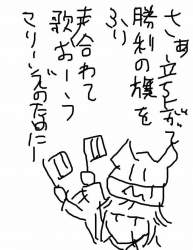 さあ立ち上がて
勝利の旗を
ふり
声合わて
歌おーーう
マリーンズのためにー